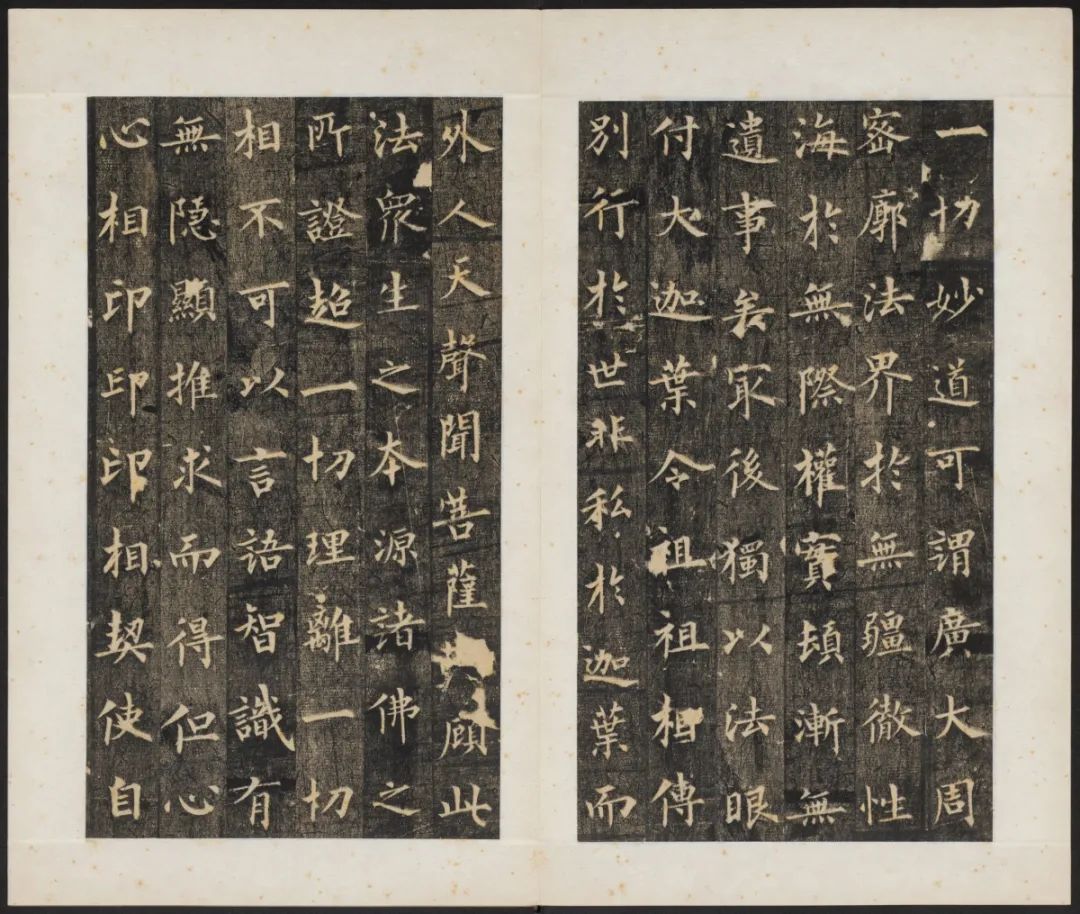 一切妙道可謂廣大周
密廓法界於無疆徹性
海於無際權實頓漸無
遺事矣㝡後獨以法眼
付大迦葉令祖祖相傳
別行於世非私於迦葉而
外人天聲聞菩薩顧此
法衆生之本源諸佛之
所證超一切理離一切
相不可以言語智識有
無隱顯推求而得但心
心相印印印相契使自